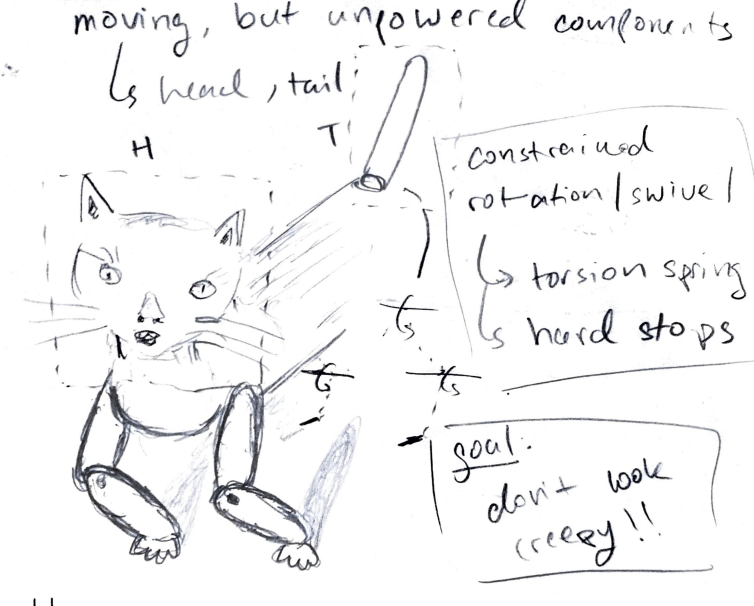 moving, but unpowered components
↳ head, tail
H
T
constrained
rotation/swivel
↳ torsion spring
↳ hard stops
goal:
don't look
creepy!!